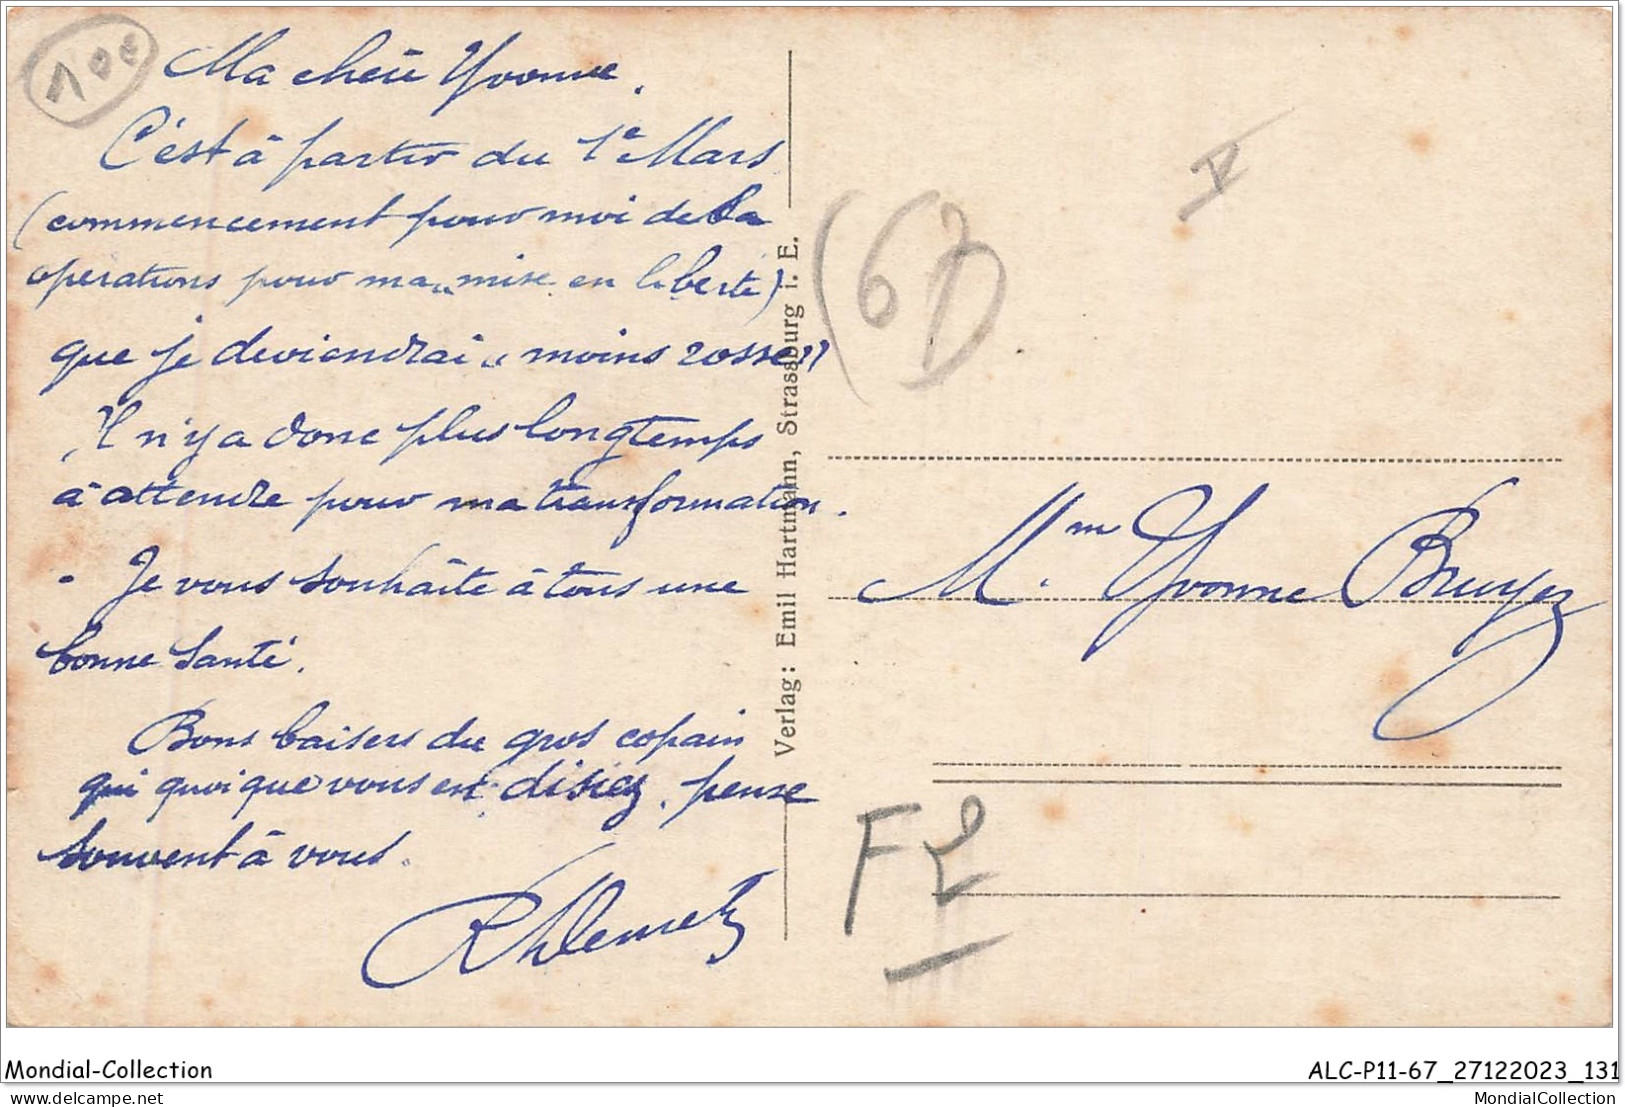 10€
Ma chère Yvonne.
C'est à partir du 1e Mars
(commencement pour moi de la
opérations pour ma „ mise en liberté)
que je deviendrai „ moins rosse "
Il n'y a donc plus longtemps
à attendre pour ma transformation.
- Je vous souhaite à tous une
bonne santé.
Bons baisers du gros copain
qui quoique vous en disiez, pense
souvent à vous.
Verlag: Emil Hartmann, Strassburg i. E.
(67)
V
Mm Yvonne Bruyez
F2
Mondial-Collection
ALC-P11-67_27122023_131
delcampe.net
MondialCollection